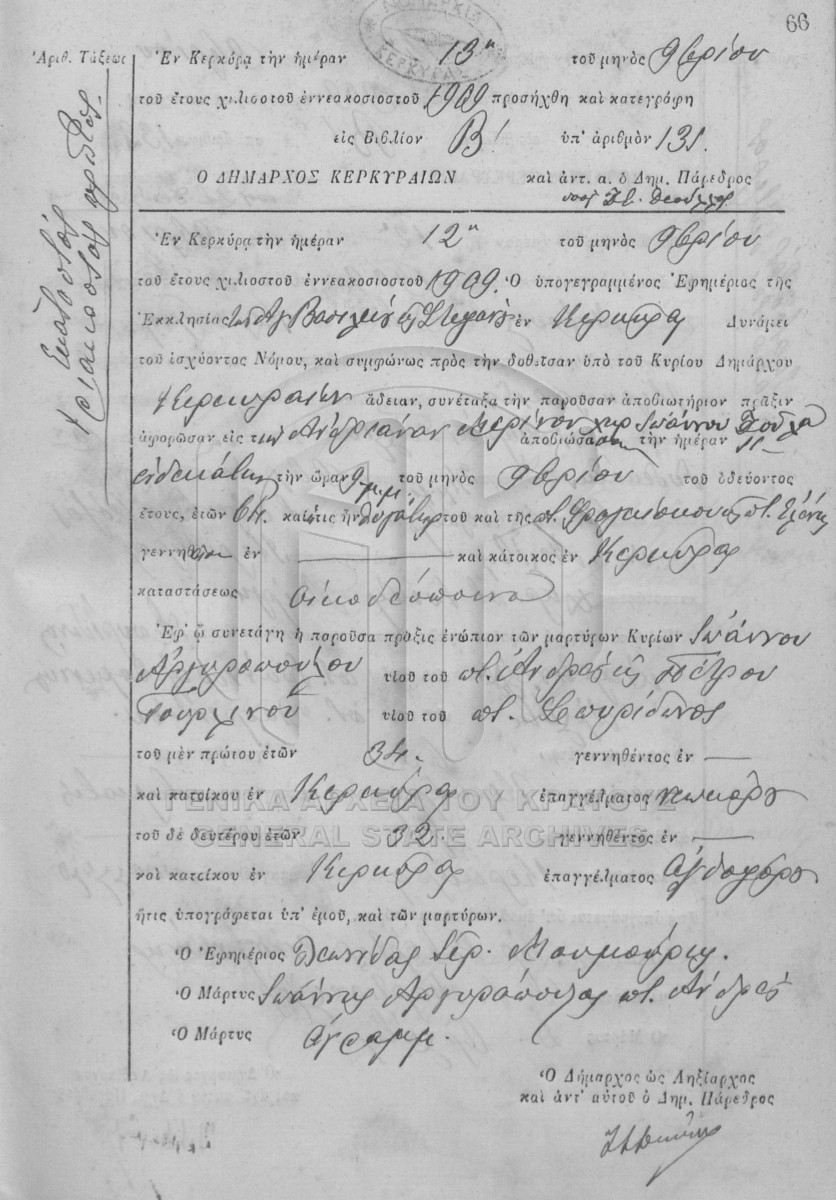 66
Ἀριθ. Τάξεως
Ἑκατοστὸς τριακοστὸς πρῶτος
Ἐν Κερκύρᾳ τὴν ἡμέραν 13ην τοῦ μηνὸς 9βρίου
τοῦ ἔτους χιλιοστοῦ ἐννεακοσιοστοῦ 1909 προσήχθη καὶ κατεγράφη
εἰς Βιβλίον Β! ὑπ' ἀριθμὸν 131.
Ὁ ΔΗΜΑΡΧΟΣ ΚΕΡΚΥΡΑΙΩΝ καὶ ἀντ. α. ὁ Δημ. Πάρεδρος
Ἐν Κερκύρᾳ τὴν ἡμέραν 12ην τοῦ μηνὸς 9βρίου
τοῦ ἔτους χιλιοστοῦ ἐννεακοσιοστοῦ 1909. Ὁ ὑπογεγραμμένος Ἐφημέριος τῆς
Ἐκκλησίας τῶν Ἁγ Βασιλείου Στεφάνου ἐν Κερκύρᾳ Δυνάμει
τοῦ ἰσχύοντος Νόμου, καὶ συμφώνως πρὸς τὴν δοθεῖσαν ὑπὸ τοῦ Κυρίου Δημάρχου
Κερκυραίων ἄδειαν, συνέταξα τὴν παροῦσαν ἀποβιωτήριον πρᾶξιν
ἀφορῶσαν εἰς τὴν Ἀνδριάναν χήρ Ἰωάννου ἀποβιώσασαν τὴν ἡμέραν 11
ἑνδεκάτην τὴν ὥραν 9 μ.μ. τοῦ μηνὸς 9βρίου τοῦ ὁδεύοντος
ἔτους, ἐτῶν 64. καὶ ἥτις ἦν θυγάτηρ τοῦ καὶ τῆς ποτ. Φραγκίσκου ποτ. Ἑλένης
γεννηθεῖσα ἐν — καὶ κάτοικος ἐν Κερκύρᾳ
καταστάσεως οἰκοδέσποινα
Ἐφ' ᾧ συνετάγη ἡ παροῦσα πρᾶξις ἐνώπιον τῶν μαρτύρων Κυρίων Ἰωάννου
Ἀργυροπούλου υἱοῦ τοῦ ποτ. Ἀνδρέα καὶ Πέτρου
υἱοῦ τοῦ ποτ. Σπυρίδωνος
τοῦ μὲν πρώτου ἐτῶν 34. γεννηθέντος ἐν —
καὶ κατοίκου ἐν Κερκύρᾳ ἐπαγγέλματος
τοῦ δὲ δευτέρου ἐτῶν 32. γεννηθέντος ἐν —
καὶ κατοίκου ἐν Κερκύρᾳ ἐπαγγέλματος ἀχθοφόρου
ἥτις ὑπογράφεται ὑπ' ἐμοῦ, καὶ τῶν μαρτύρων.
Ὁ Ἐφημέριος Λεωνίδας Ἱερ.
Ὁ Μάρτυς Ἰωάννης Ἀργυρόπουλος ποτ. Ἀνδρέα
Ὁ Μάρτυς ἀγράμμ.
Ὁ Δήμαρχος ὡς Ληξίαρχος
καὶ ἀντ' αὐτοῦ ὁ Δημ. Πάρεδρος
ΓΕΝΙΚΑ ΑΡΧΕΙΑ ΤΟΥ ΚΡΑΤΟΥΣ
GENERAL STATE ARCHIVES